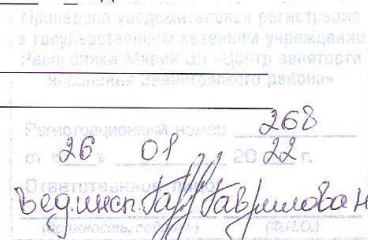 Проведена уведомительная регистрация
в государственном казенном учреждении
Республики Марий Эл «Центр занятости
населения Звениговского района»
Регистрационный номер 268
от « 26 » 01 20 22 г.
Ответственное лицо
Вед.инсп. Гаврилова Н
(должность, подпись) (Ф.И.О.)